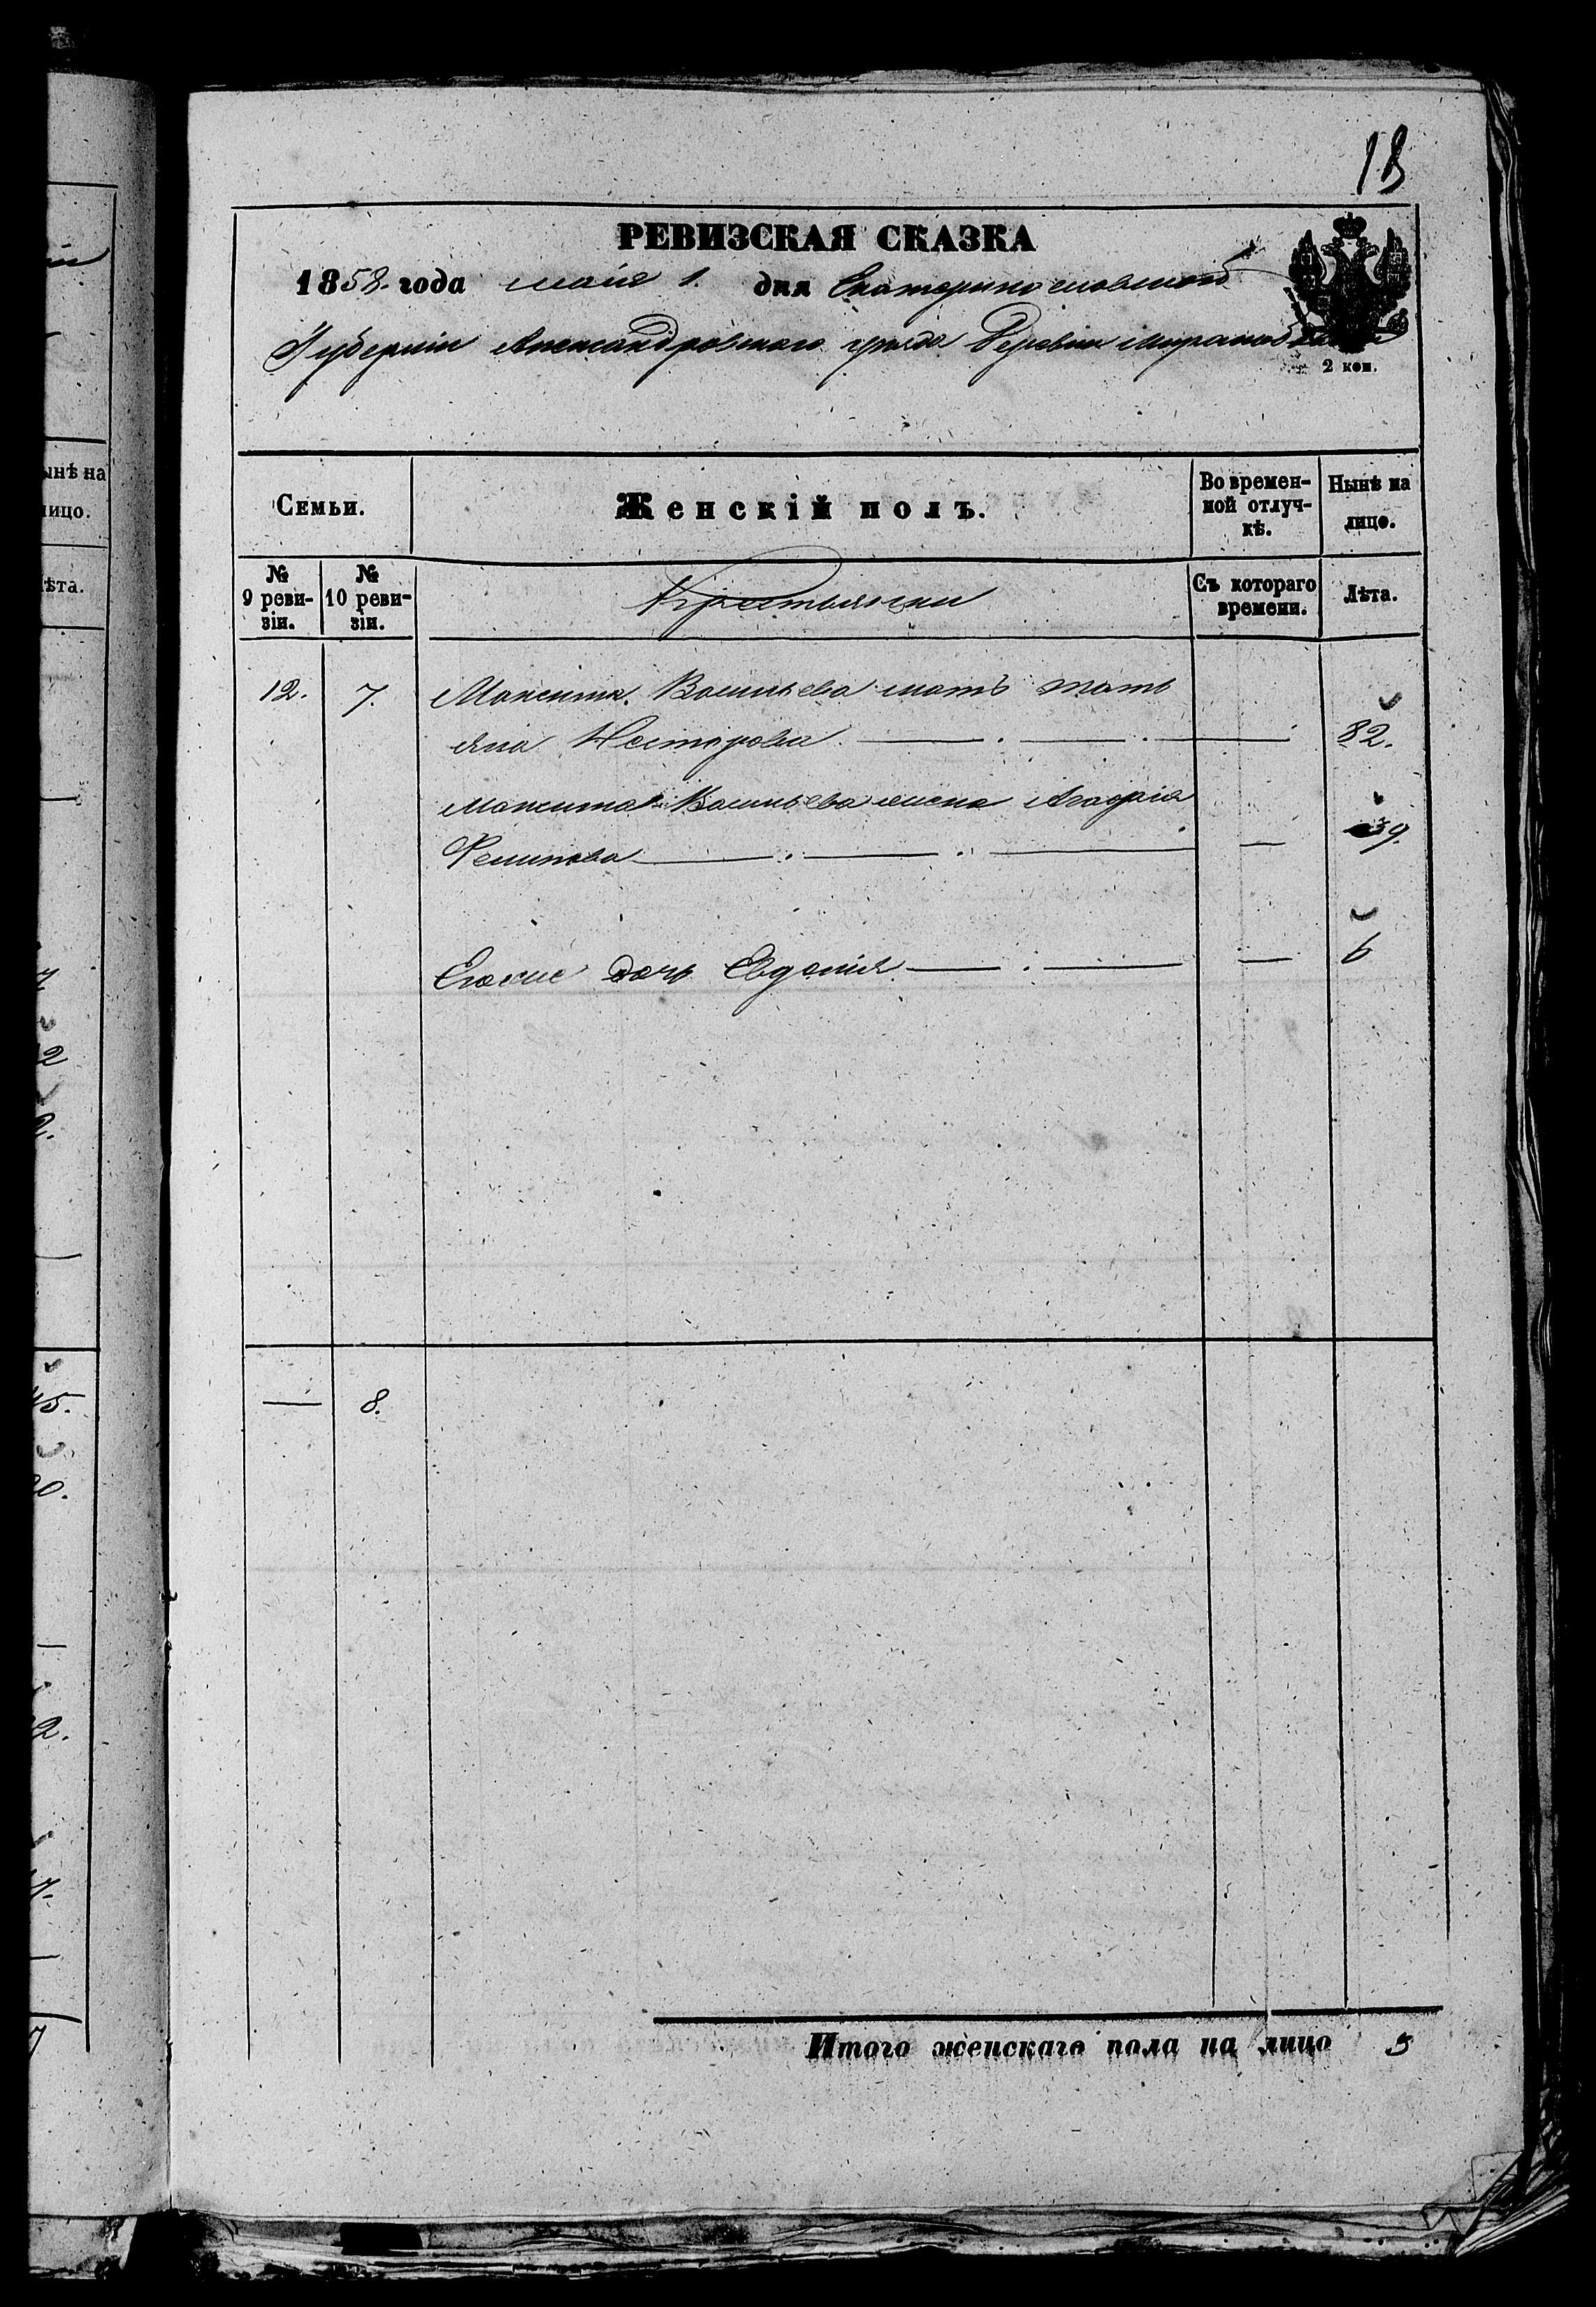 18
РЕВИЗСКАЯ СКАЗКА
1858 года маія 1. дня Екатеринославской
Губерніи Александровского уѣзда Деревни
2 коп.
Семьи.
Женскій полъ.
Во времен-
ной отлуч-
кѣ.
Нынѣ на
лицо.
№
9 реви-
зіи.
№
10 реви-
зіи.
Крестьянки
Съ котораго
времени.
Лѣта.
12. 7. Максима Васильева мать Тать
яна Нестерова 82.
Максима Васильева жена Агафія
Филипова — 39.
Еюжие дочь Евдокія — 6
— 8.
Итого женскаго пола на лицо 3
ынѣ на
лицо.
ѣта.